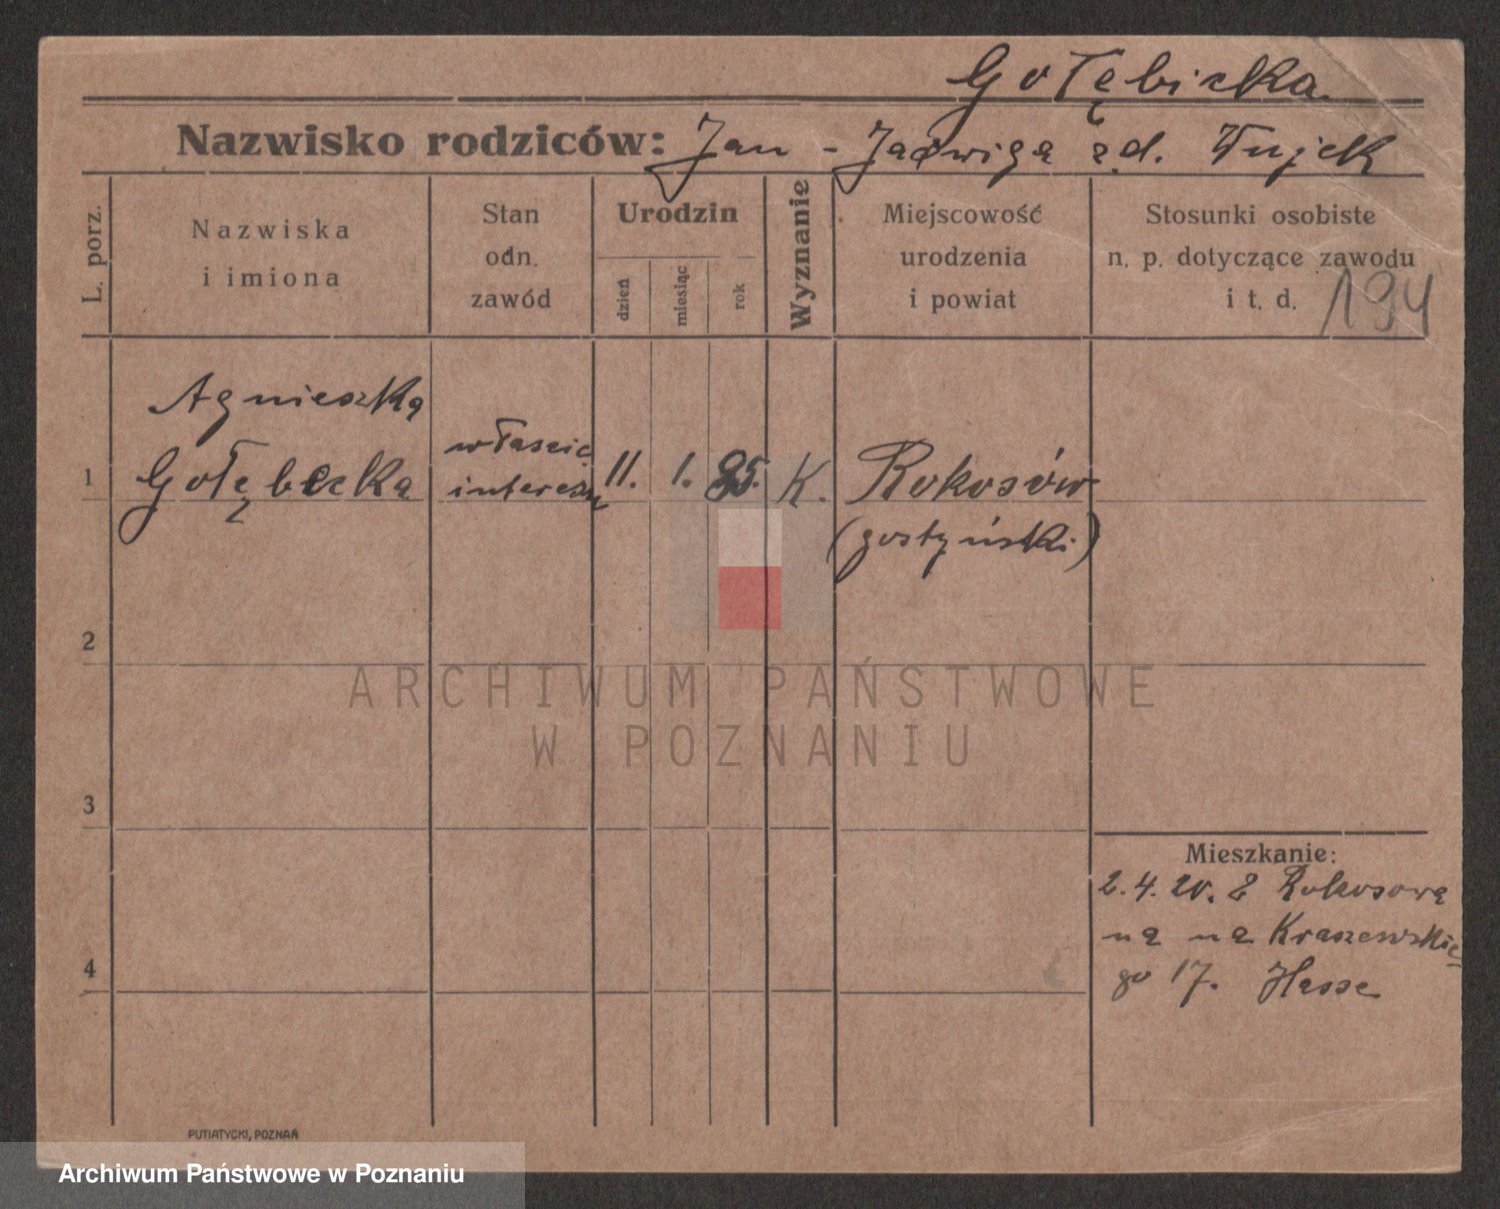 Gołębicka
Nazwisko rodziców: Jan - Jadwiga z d. Wujek
L. porz.
Nazwiska
i imiona
Stan
odn.
zawód
Urodzin
dzień
miesiąc
rok
Wyznanie
Miejscowość
urodzenia
i powiat
Stosunki osobiste
n. p. dotyczące zawodu
i t. d. 194
Agnieszka
1 Gołębicka
właścic.
interesu
11. 1. 85. K. Rokosów
(gostyński)
2
ARCHIWUM PAŃSTWOWE
W POZNANIU
3
Mieszkanie:
2.4.20. z Rokosowa
na Kraszewskie
4
go 17. Hasse
PUTIATYCKI, POZNAŃ
Archiwum Państwowe w Poznaniu